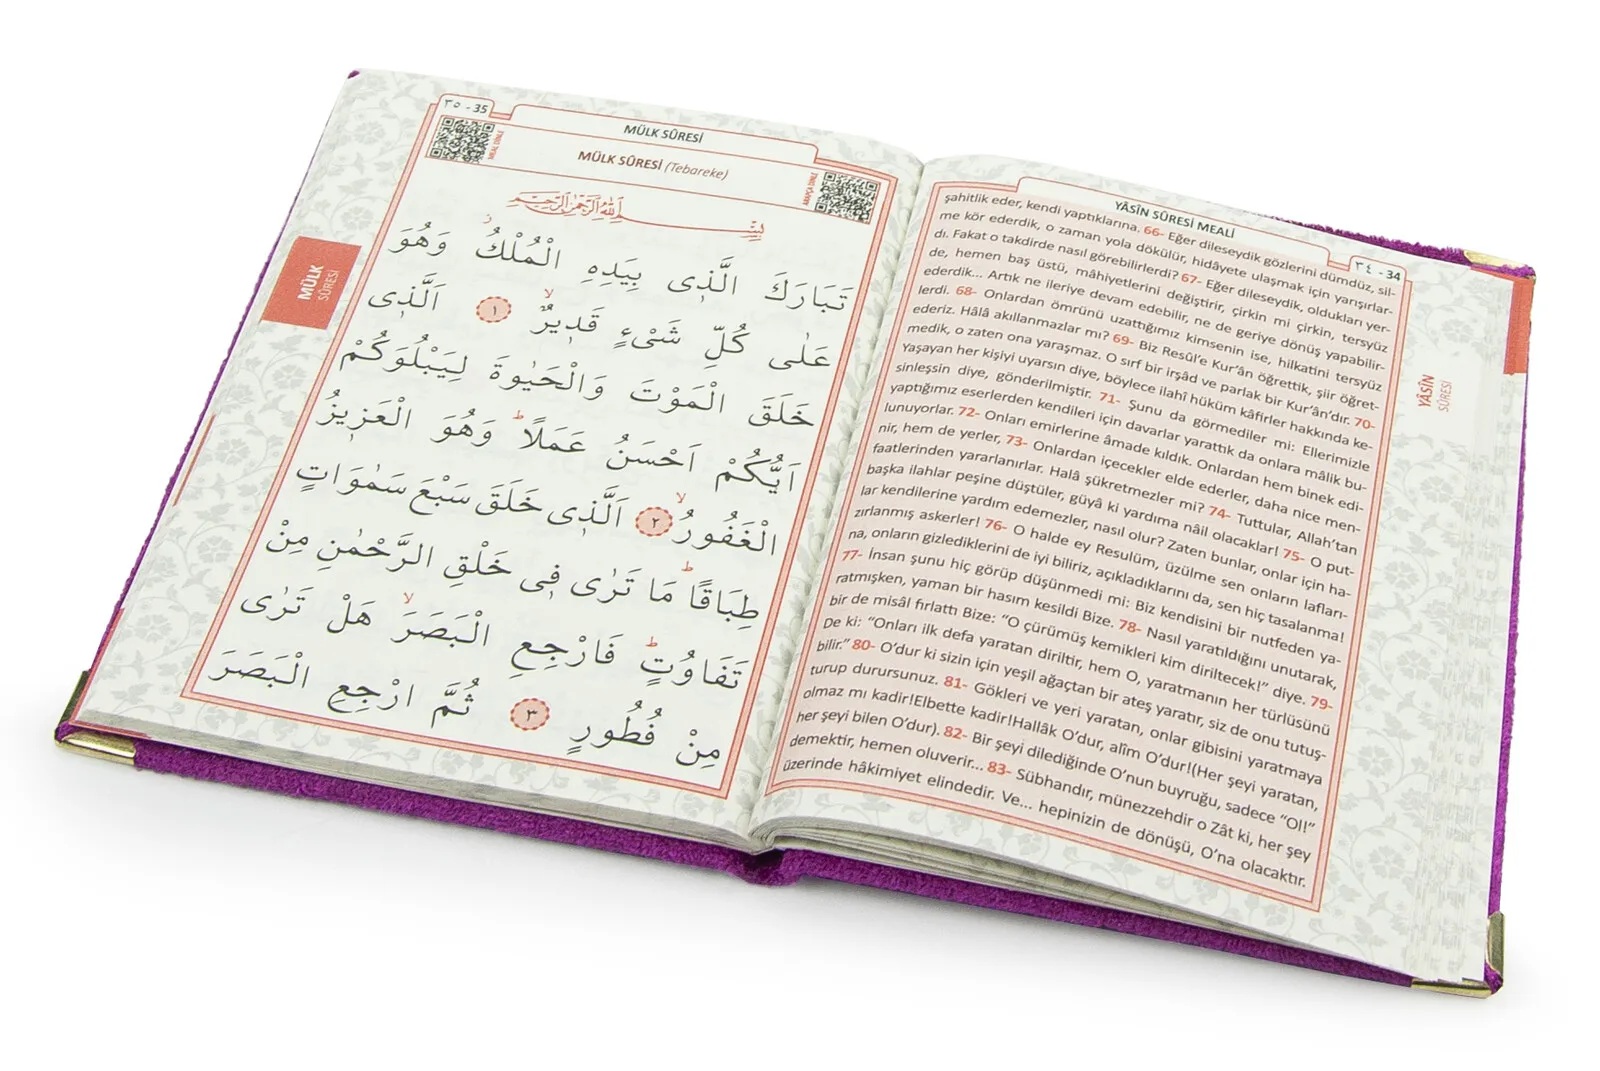 YÂSÎN SÛRESİ MEALİ
٣٤ - 34
şahitlik eder, kendi yaptıklarına. 66- Eğer dileseydik gözlerini dümdüz, sil-
me kör ederdik, o zaman yola dökülür, hidâyete ulaşmak için yarışırlar-
dı. Fakat o takdirde nasıl görebilirlerdi? 67- Eğer dileseydik, oldukları yer-
de, hemen baş üstü, mâhiyetlerini değiştirir, çirkin mi çirkin, tersyüz
ederdik... Artık ne ileriye devam edebilir, ne de geriye dönüş yapabilir-
lerdi. 68- Onlardan ömrünü uzattığımız kimsenin ise, hilkatini tersyüz
ederiz. Hâlâ akıllanmazlar mı? 69- Biz Resûl'e Kur'ân öğrettik, şiir öğret-
medik, o zaten ona yaraşmaz. O sırf bir irşâd ve parlak bir Kur'ân'dır. 70-
Yaşayan her kişiyi uyarsın diye, böylece ilahî hüküm kâfirler hakkında ke-
sinleşsin diye, gönderilmiştir. 71- Şunu da görmediler mi: Ellerimizle
yaptığımız eserlerden kendileri için davarlar yarattık da onlara mâlik bu-
lunuyorlar. 72- Onları emirlerine âmade kıldık. Onlardan hem binek edi-
nir, hem de yerler, 73- Onlardan içecekler elde ederler, daha nice men-
faatlerinden yararlanırlar. Halâ şükretmezler mi? 74- Tuttular, Allah'tan
başka ilahlar peşine düştüler, güyâ ki yardıma nâil olacaklar! 75- O put-
lar kendilerine yardım edemezler, nasıl olur? Zaten bunlar, onlar için ha-
zırlanmış askerler! 76- O halde ey Resulüm, üzülme sen onların lafları-
na, onların gizlediklerini de iyi biliriz, açıkladıklarını da, sen hiç tasalanma!
77- İnsan şunu hiç görüp düşünmedi mi: Biz kendisini bir nutfeden ya-
ratmışken, yaman bir hasım kesildi Bize. 78- Nasıl yaratıldığını unutarak,
bir de misâl fırlattı Bize: "O çürümüş kemikleri kim diriltecek!" diye. 79-
De ki: "Onları ilk defa yaratan diriltir, hem O, yaratmanın her türlüsünü
bilir." 80- O'dur ki sizin için yeşil ağaçtan bir ateş yaratır, siz de onu tutuş-
turup durursunuz. 81- Gökleri ve yeri yaratan, onlar gibisini yaratmaya
olmaz mı kadir!Elbette kadir!Hallâk O'dur, alîm O'dur!(Her şeyi yaratan,
her şeyi bilen O'dur). 82- Bir şeyi dilediğinde O'nun buyruğu, sadece "Ol!"
demektir, hemen oluverir... 83- Sübhandır, münezzehdir o Zât ki, her şey
üzerinde hâkimiyet elindedir. Ve... hepinizin de dönüşü, O'na olacaktır.
YÂSÎN
SÛRESİ
٣٥ - 35
MÜLK SÛRESİ
MEAL DİNLE
MÜLK SÛRESİ (Tebareke)
ARAPÇA DİNLE
بِسْمِ اللّٰهِ الرَّحْمٰنِ الرَّحِيمِ
تَبَارَكَ الَّذٖى بِيَدِهِ الْمُلْكُ وَهُوَ
عَلٰى كُلِّ شَىْءٍ قَدٖيرٌ ١ اَلَّذٖى
خَلَقَ الْمَوْتَ وَالْحَيٰوةَ لِيَبْلُوَكُمْ
اَيُّكُمْ اَحْسَنُ عَمَلًا وَهُوَ الْعَزٖيزُ
الْغَفُورُ ٢ اَلَّذٖى خَلَقَ سَبْعَ سَمٰوَاتٍ
طِبَاقًا مَا تَرٰى فٖى خَلْقِ الرَّحْمٰنِ مِنْ
تَفَاوُتٍ فَارْجِعِ الْبَصَرَ هَلْ تَرٰى
مِنْ فُطُورٍ ٣ ثُمَّ ارْجِعِ الْبَصَرَ
MÜLK
SÛRESİ